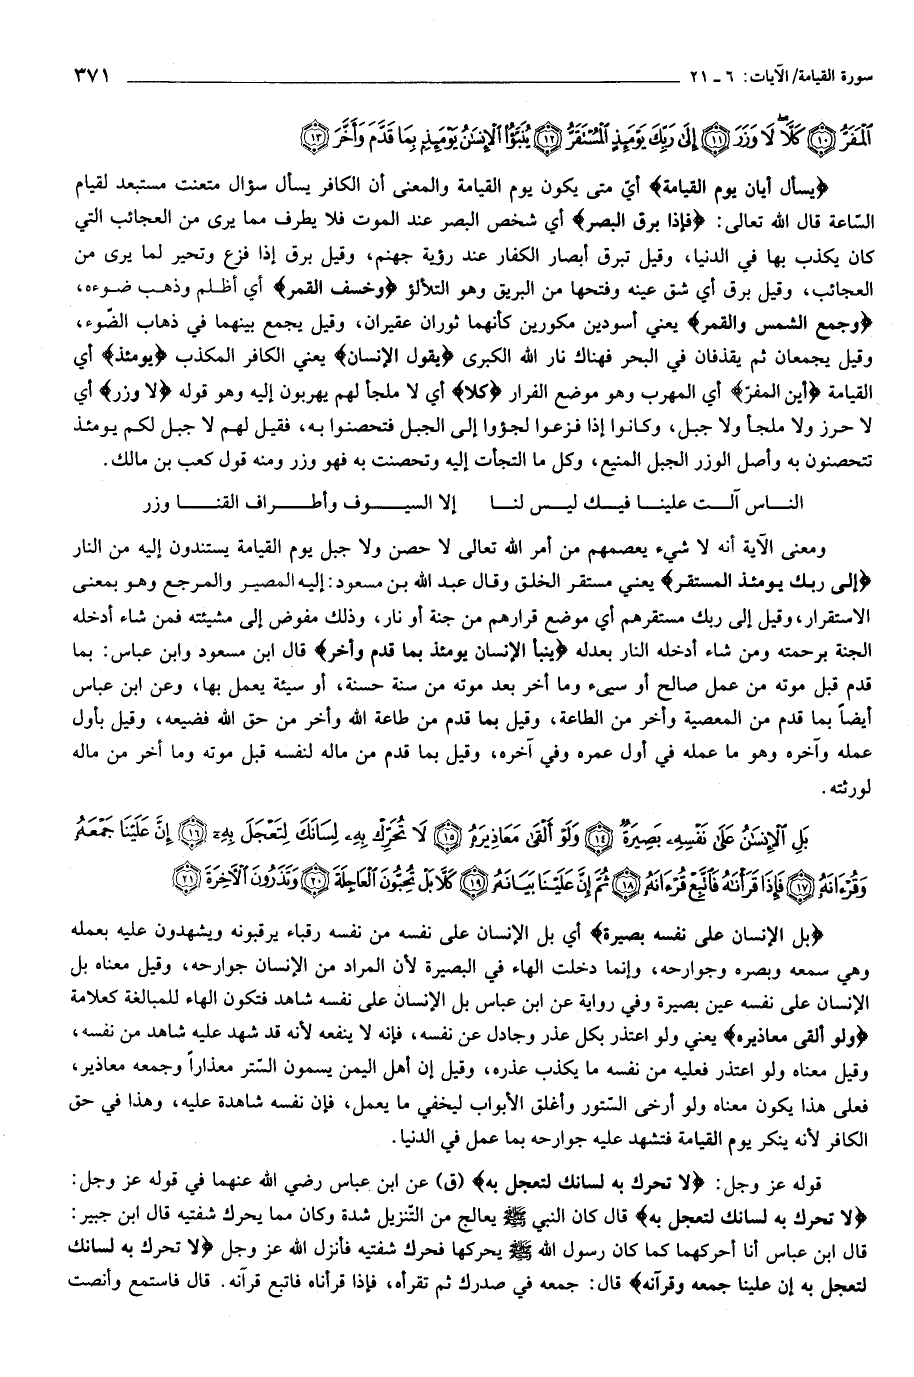 سورة القيامة/ الآيات: ٦ ـ ٢١ ٣٧١
ٱلْمَفَرُّ ﴿١٠﴾ كَلَّا لَا وَزَرَ ﴿١١﴾ إِلَىٰ رَبِّكَ يَوْمَئِذٍ ٱلْمُسْتَقَرُّ ﴿١٢﴾ يُنَبَّؤُا ٱلْإِنسَٰنُ يَوْمَئِذٍۭ بِمَا قَدَّمَ وَأَخَّرَ ﴿١٣﴾
﴿يسأل أيان يوم القيامة﴾ أيّ متى يكون يوم القيامة والمعنى أن الكافر يسأل سؤال متعنت مستبعد لقيام
السّاعة قال الله تعالى: ﴿فإذا برق البصر﴾ أي شخص البصر عند الموت فلا يطرف مما يرى من العجائب التي
كان يكذب بها في الدنيا، وقيل تبرق أبصار الكفار عند رؤية جهنم، وقيل برق إذا فزع وتحير لما يرى من
العجائب، وقيل برق أي شق عينه وفتحها من البريق وهو التلألؤ ﴿وخسف القمر﴾ أي أظلم وذهب ضوءه،
﴿وجمع الشمس والقمر﴾ يعني أسودين مكورين كأنهما ثوران عقيران، وقيل يجمع بينهما في ذهاب الضّوء،
وقيل يجمعان ثم يقذفان في البحر فهناك نار الله الكبرى ﴿يقول الإنسان﴾ يعني الكافر المكذب ﴿يومئذ﴾ أي
القيامة ﴿أين المفرّ﴾ أي المهرب وهو موضع الفرار ﴿كلا﴾ أي لا ملجأ لهم يهربون إليه وهو قوله ﴿لا وزر﴾ أي
لا حرز ولا ملجأ ولا جبل، وكانوا إذا فزعوا لجؤوا إلى الجبل فتحصنوا به، فقيل لهم لا جبل لكم يومئذ
تتحصنون به وأصل الوزر الجبل المنيع، وكل ما التجأت إليه وتحصنت به فهو وزر ومنه قول كعب بن مالك.
الناس آلت علينا فيك ليس لنا إلا السيوف وأطراف القنا وزر
ومعنى الآية أنه لا شيء يعصمهم من أمر الله تعالى لا حصن ولا جبل يوم القيامة يستندون إليه من النار
﴿إلى ربك يومئذ المستقر﴾ يعني مستقر الخلق وقال عبد الله بن مسعود: إليه المصير والمرجع وهو بمعنى
الاستقرار، وقيل إلى ربك مستقرهم أي موضع قرارهم من جنة أو نار، وذلك مفوض إلى مشيئته فمن شاء أدخله
الجنة برحمته ومن شاء أدخله النار بعدله ﴿ينبأ الإنسان يومئذ بما قدم وأخر﴾ قال ابن مسعود وابن عباس: بما
قدم قبل موته من عمل صالح أو سيىء وما أخر بعد موته من سنة حسنة، أو سيئة يعمل بها، وعن ابن عباس
أيضاً بما قدم من المعصية وأخر من الطاعة، وقيل بما قدم من طاعة الله وأخر من حق الله فضيعه، وقيل بأول
عمله وآخره وهو ما عمله في أول عمره وفي آخره، وقيل بما قدم من ماله لنفسه قبل موته وما أخر من ماله
لورثته.
بَلِ ٱلْإِنسَٰنُ عَلَىٰ نَفْسِهِۦ بَصِيرَةٌ ﴿١٤﴾ وَلَوْ أَلْقَىٰ مَعَاذِيرَهُۥ ﴿١٥﴾ لَا تُحَرِّكْ بِهِۦ لِسَانَكَ لِتَعْجَلَ بِهِۦٓ ﴿١٦﴾ إِنَّ عَلَيْنَا جَمْعَهُۥ
وَقُرْءَانَهُۥ ﴿١٧﴾ فَإِذَا قَرَأْنَٰهُ فَٱتَّبِعْ قُرْءَانَهُۥ ﴿١٨﴾ ثُمَّ إِنَّ عَلَيْنَا بَيَانَهُۥ ﴿١٩﴾ كَلَّا بَلْ تُحِبُّونَ ٱلْعَاجِلَةَ ﴿٢٠﴾ وَتَذَرُونَ ٱلْءَاخِرَةَ ﴿٢١﴾
﴿بل الإنسان على نفسه بصيرة﴾ أي بل الإنسان على نفسه من نفسه رقباء يرقبونه ويشهدون عليه بعمله
وهي سمعه وبصره وجوارحه، وإنما دخلت الهاء في البصيرة لأن المراد من الإنسان جوارحه، وقيل معناه بل
الإنسان على نفسه عين بصيرة وفي رواية عن ابن عباس بل الإنسان على نفسه شاهد فتكون الهاء للمبالغة كعلامة
﴿ولو ألقى معاذيره﴾ يعني ولو اعتذر بكل عذر وجادل عن نفسه، فإنه لا ينفعه لأنه قد شهد عليه شاهد من نفسه،
وقيل معناه ولو اعتذر فعليه من نفسه ما يكذب عذره، وقيل إن أهل اليمن يسمون السّتر معذاراً وجمعه معاذير،
فعلى هذا يكون معناه ولو أرخى السّتور وأغلق الأبواب ليخفي ما يعمل، فإن نفسه شاهدة عليه، وهذا في حق
الكافر لأنه ينكر يوم القيامة فتشهد عليه جوارحه بما عمل في الدنيا.
قوله عز وجل: ﴿لا تحرك به لسانك لتعجل به﴾ (ق) عن ابن عباس رضي الله عنهما في قوله عز وجل:
﴿لا تحرك به لسانك لتعجل به﴾ قال كان النبي ﷺ يعالج من التّنزيل شدة وكان مما يحرك شفتيه قال ابن جبير:
قال ابن عباس أنا أحركهما كما كان رسول الله ﷺ يحركها فحرك شفتيه فأنزل الله عز وجل ﴿لا تحرك به لسانك
لتعجل به إن علينا جمعه وقرآنه﴾ قال: جمعه في صدرك ثم تقرأه، فإذا قرأناه فاتبع قرآنه. قال فاستمع وأنصت